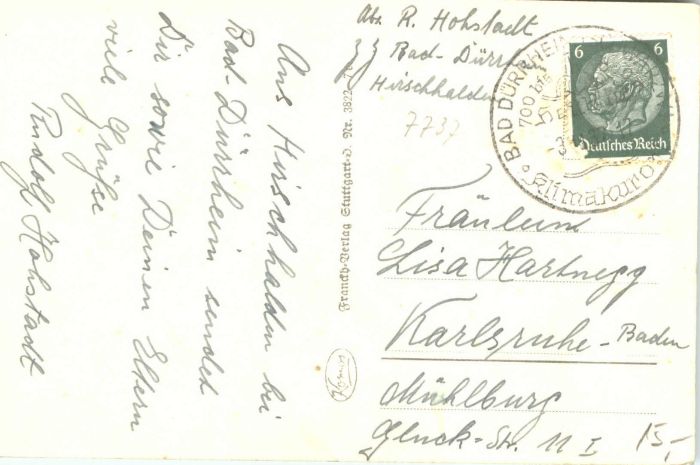 Aus Hirschhalden bei
Bad-Dürrheim sendet
Dir sowie Deinen Eltern
viele Grüße
Rudolf Hohstadt
Franckh-Verlag Stuttgart-O. Nr. 3822
Kosmos
Abs. R. Hohstadt
zz Bad-Dürrheim
Hirschhalden
7737
BAD DÜRRHEIM
700
Klimakuro
6 6
Deutsches Reich
Fräulein
Lisa Hartnegg
Karlsruhe-Baden
Mühlburg
Gluck-Str. 11 I
15,-